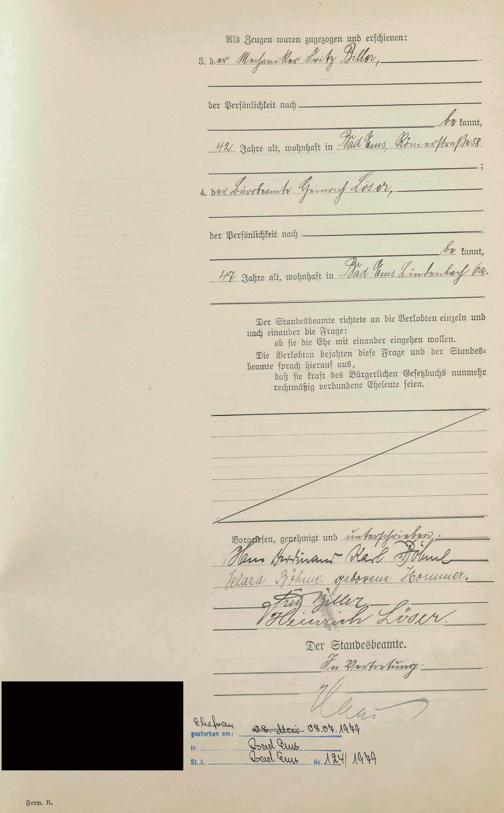 Als Zeugen waren zugezogen und erschienen:
3. der Mechaniker Fritz Biller,
der Persönlichkeit nach
be kannt,
42 Jahre alt, wohnhaft in Bad Ems, Römerstraße 58
;
4. der Büroбeamte Heinrich Löser,
der Persönlichkeit nach
be kannt,
47 Jahre alt, wohnhaft in Bad Ems Lindenbach 6a.
Der Standesbeamte richtete an die Verlobten einzeln und
nach einander die Frage:
ob sie die Ehe mit einander eingehen wollen.
Die Verlobten bejahten diese Frage und der Standes=
beamte sprach hierauf aus,
daß sie kraft des Bürgerlichen Gesetzbuchs nunmehr
rechtmäßig verbundene Eheleute seien.
Vorgelesen, genehmigt und unterschrieben:
Hans Ferdinand Karl Böhme
Klara Böhme geborene Hommer.
Fritz Biller
Heinrich Löser.
Der Standesbeamte.
In Vertretung:
Ehefrau
gestorben am: 08. Mai 08.07.1979
in Bad Ems
St.A. Bad Ems Nr. 124/1979
Form. B.